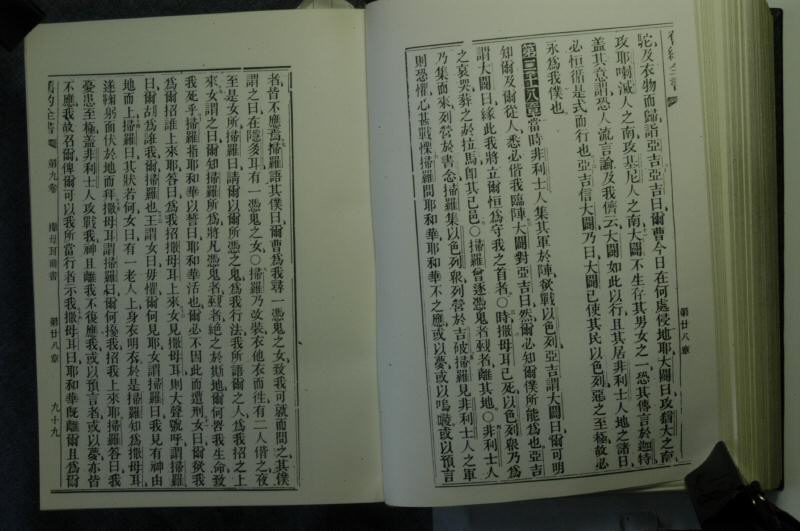 舊約全書
第廿八章
駝及衣物而歸詣亞吉亞吉曰爾曹今日在何處侵地耶大闢曰攻猶大之南
攻耶喇滅人之南攻基尼人之南大闢不生存其男女之一恐其傳言於迦特
蓋其意謂恐人流言論及我儕云大闢如此以行且其居非利士人地之諸日
必恒循是式而行也亞吉信大闢乃曰大闢已使其民以色列惡之至極故必
永為我僕也
第二十八章當時非利士人集其軍於陣欲戰以色列亞吉謂大闢曰爾可明
知爾及爾從人悉必偕我臨陣大闢對亞吉曰然爾必知爾僕所能為也亞吉
謂大闢曰緣此我將立爾恒為守我之首者○時撒母耳已死以色列衆乃為
之哀哭葬之於拉馬卽其己邑○掃羅曾逐憑鬼者覡者離其地○非利士人
乃集而來列營於書念掃羅集以色列衆列營於吉破掃羅見非利士人之軍
則恐懼心甚戰慄掃羅問耶和華耶和華不之應或以夢或以嗚唛或以預言
者皆不應焉掃羅語其僕曰爾曹為我尋一憑鬼之女致我可就而問之其僕
謂之曰在隱多耳有一憑鬼之女○掃羅乃改裝衣他衣而徃有二人偕之夜
至是女所掃羅曰請以爾所憑之鬼為我行法我所語爾之人為我招之上
來女謂之曰爾知掃羅所為將凡憑鬼者覡者絕之於斯地爾何罟我生命致
我死乎掃羅指耶和華以誓曰耶和華活也爾必不因此而遭刑女曰爾欲我
為爾招誰上來耶答曰為我招撒母耳上來女見撒母耳則大聲號呼謂掃羅
曰爾胡為誑我爾掃羅也王謂女曰毋懼爾何見耶女謂掃羅曰我見有神由
地而上掃羅曰其狀若何女曰有一老人上身衣明衣於是掃羅知為撒母耳
遂鞠躬而伏於地而拜撒母耳謂掃羅曰爾何擾我招我上來耶掃羅答曰我
憂患至極蓋非利士人攻戰我神且離我不復應我或以預言者或以夢亦皆
不應我故召爾俾爾可以我所當行者示我撒母耳曰耶和華旣離爾且為爾
舊約全書
第九卷
撒母耳前書
第廿八章
九十九